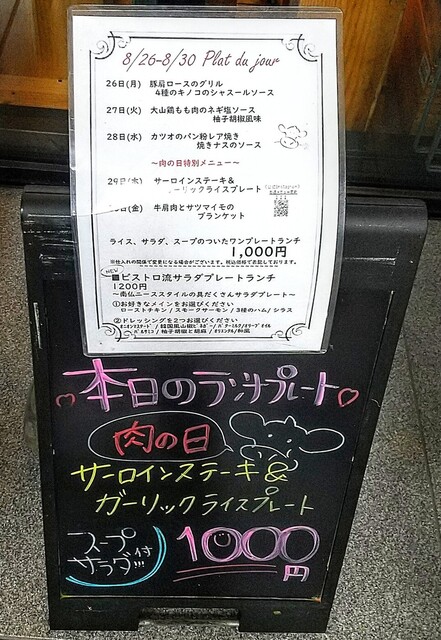 8/26-8/30 Plat du jour
26日(月) 豚肩ロースのグリル
4種のキノコのシャスールソース
27日(火) 大山鶏もも肉のネギ塩ソース
柚子胡椒風味
28日(水) カツオのパン粉レア焼き
焼きナスのソース
～肉の日特別メニュー～
29日(木) サーロインステーキ&
ーリックライスプレート
日(金) 牛肩肉とサツマイモの
ブランケット
ライス、サラダ、スープのついたワンプレートランチ
1,000円
※仕入れの関係で変更になる場合がございます。税込価格で表記しております。
NEW
■ビストロ流サラダプレートランチ
1200円
～南仏ニーススタイルの具だくさんサラダプレート～
①お好きなメインをお選びください
ローストチキン/スモークサーモン/3種のハム/シラス
②ドレッシングを2つお選びください
本日のランチプレート
肉の日
サーロインステーキ&
ガーリックライスプレート
スープ
サラダ付!!!
1000
円